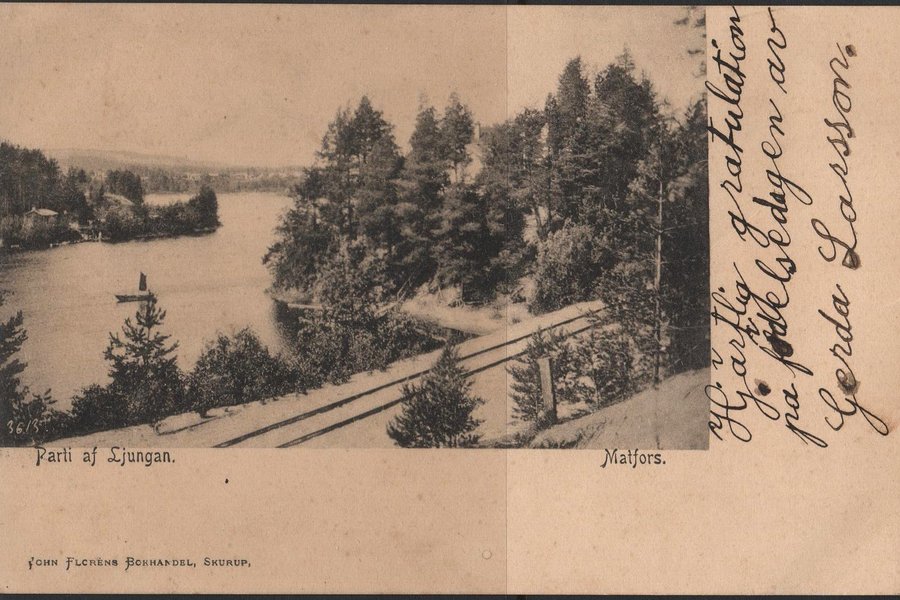 Hjärtlig gratulation
på födelsedagen av
Gerda Larsson.
3613
Parti af Ljungan.
Matfors.
JOHN FLORÉNS BOKHANDEL, SKURUP,